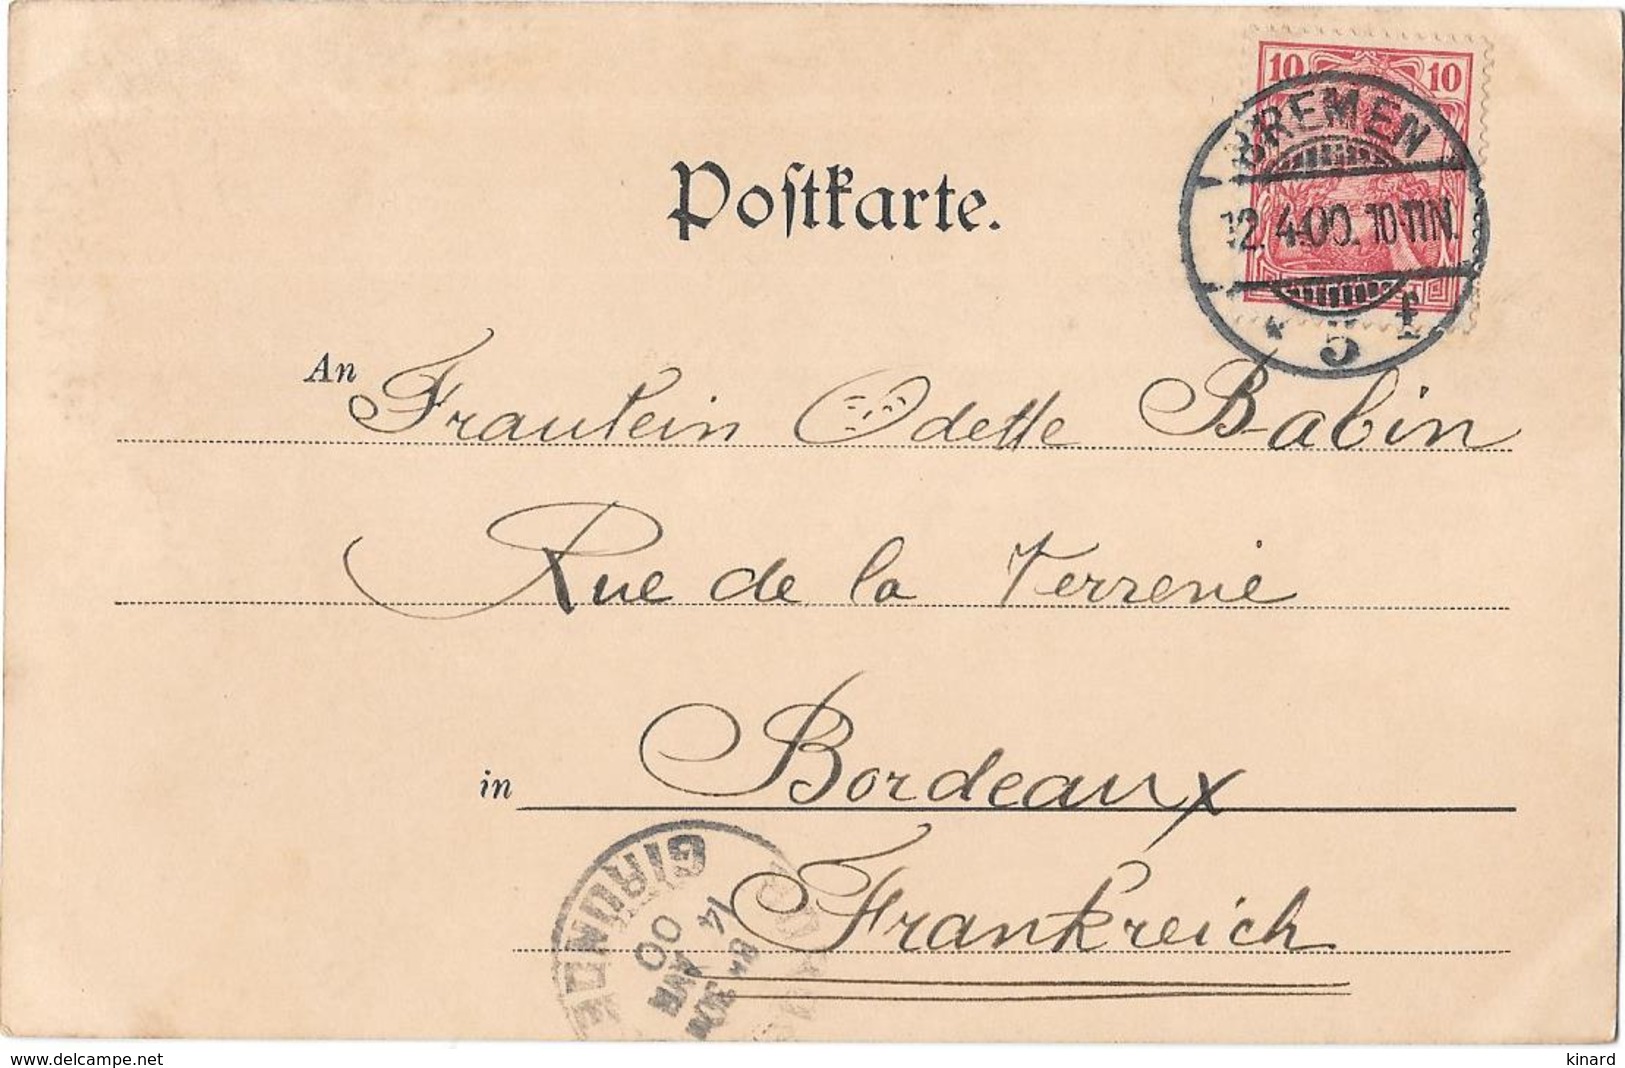 10 10
BREMEN
12.4.00. 10-11N.
* 5 f
Postkarte.
An Fraulein Odette Babin
Rue de la Terrerie
in Bordeaux
Frankreich
GIRONDE
14
AVR
00
www.delcampe.net
kinard